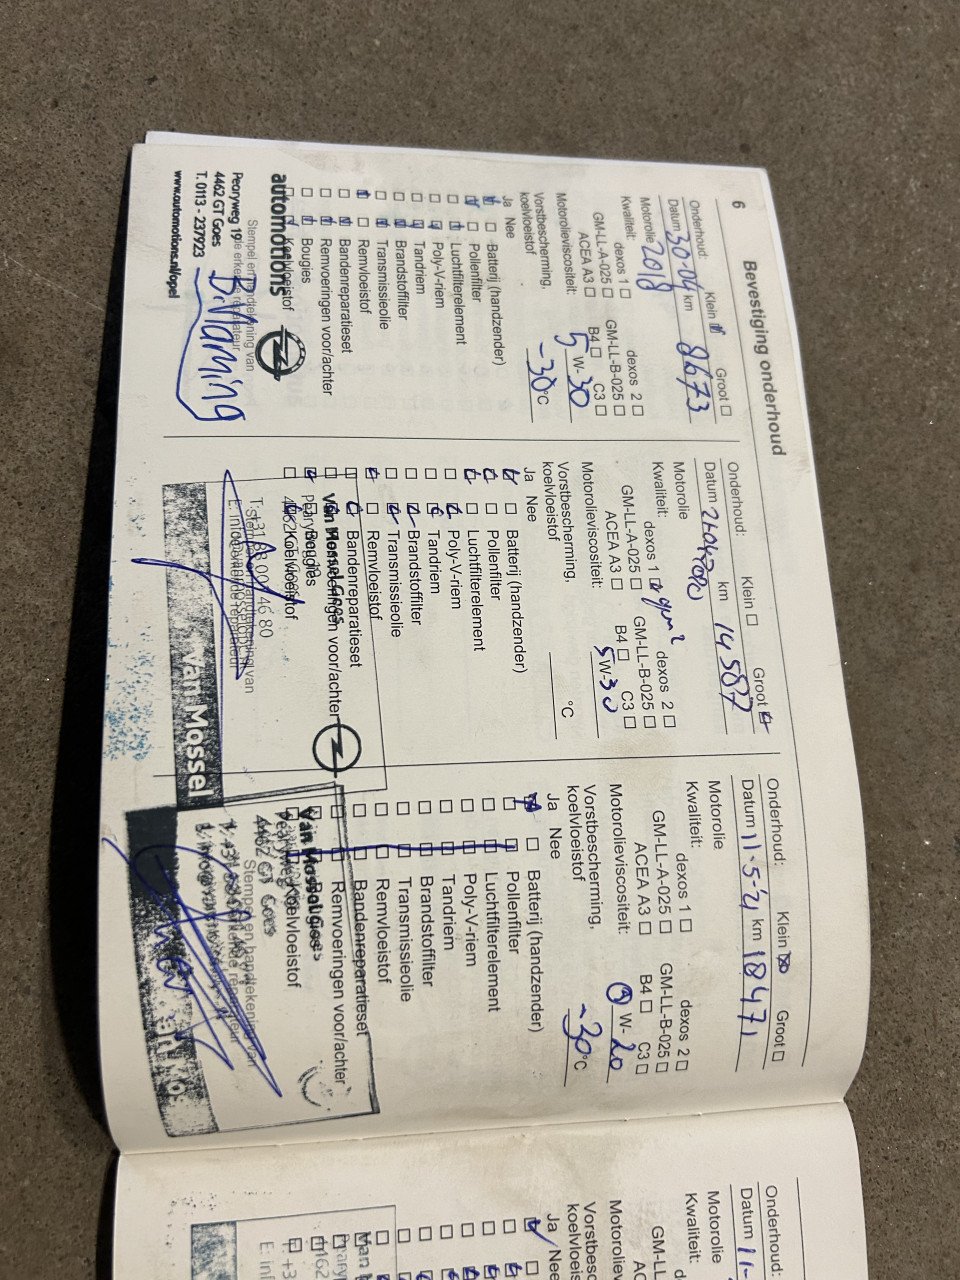 6
Bevestiging onderhoud
Onderhoud: Klein Groot
Datum 30-04 km 8673
Motorolie 2018
Kwaliteit: dexos 1 dexos 2
GM-LL-A-025 GM-LL-B-025
ACEA A3 B4 C3
Motorolieviscositeit: 5 W-30
Vorstbescherming,
koelvloeistof -30 °C
Ja Nee
Batterij (handzender)
Pollenfilter
Luchtfilterelement
Poly-V-riem
Tandriem
Brandstoffilter
Transmissieolie
Remvloeistof
Bandenreparatieset
Remvoeringen voor/achter
Bougies
Koelvloeistof
automotions
Stempel en handtekening van
Peoryweg 19
4462 GT Goes
T. 0113 - 237923
www.automotions.nl/opel
Onderhoud: Klein Groot
Datum km 14587
Motorolie
Kwaliteit: dexos 1 dexos 2
GM-LL-A-025 GM-LL-B-025
ACEA A3 B4 C3
Motorolieviscositeit: 5W-30
Vorstbescherming,
koelvloeistof °C
Ja Nee
Batterij (handzender)
Pollenfilter
Luchtfilterelement
Poly-V-riem
Tandriem
Brandstoffilter
Transmissieolie
Remvloeistof
Bandenreparatieset
Remvoeringen voor/achter
Van Mossel Goes
Bougies
Koelvloeistof
Van Mossel
Onderhoud: Klein Groot
Datum 11-5-21 km 18471
Motorolie
Kwaliteit: dexos 1 dexos 2
GM-LL-A-025 GM-LL-B-025
ACEA A3 B4 C3
Motorolieviscositeit: 0 W-20
Vorstbescherming,
koelvloeistof -30 °C
Ja Nee
Batterij (handzender)
Pollenfilter
Luchtfilterelement
Poly-V-riem
Tandriem
Brandstoffilter
Transmissieolie
Remvloeistof
Bandenreparatieset
Remvoeringen voor/achter
Bougies
Koelvloeistof
4462 GT Goes
Stempel en handtekening van
Onderhoud:
Datum 11-
Motorolie
Kwaliteit:
GM-LL
AC
Motoroliev
Vorstbesc
koelvloeis
Ja Nee